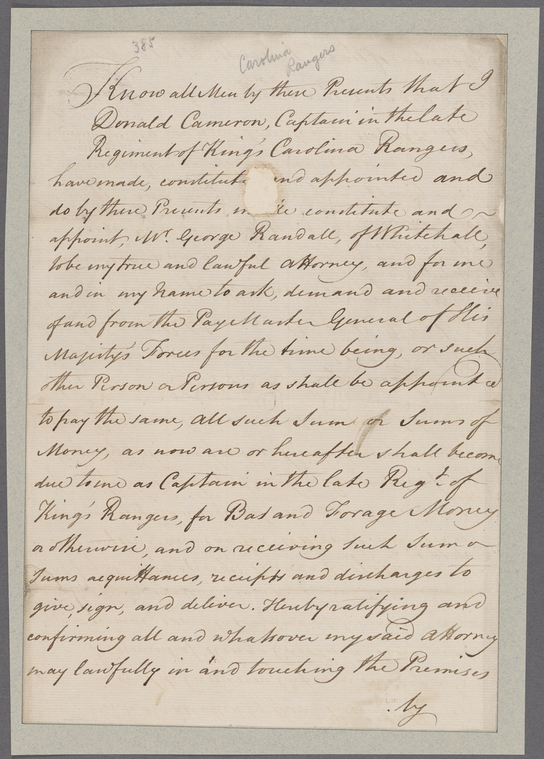 385
Carolina
Rangers
Know all Men by these Presents that I
Donald Cameron, Captain in the late
Regiment of King's Carolina Rangers,
have made, constitute and appointed and
do by these Presents, constitute and
appoint, Mr. George Randall, of Whitehall,
to be my true and lawful Attorney, and for me
and in my Name to ask, demand and receive
of and from the Pay Master General of His
Majesty's Forces for the time being, or such
other Person or Persons as shall be appointed
to pay the same, all such Sum or Sums of
Money, as now are or hereafter shall become
due to me as Captain in the late Regt. of
King's Rangers, for Bat and Forage Money
or otherwise, and on receiving such Sum or
Sums acquittances, receipts and discharges to
give, sign, and deliver. Hereby ratifying and
confirming all and whatsover my said Attorney
may lawfully in and touching the Premises
by